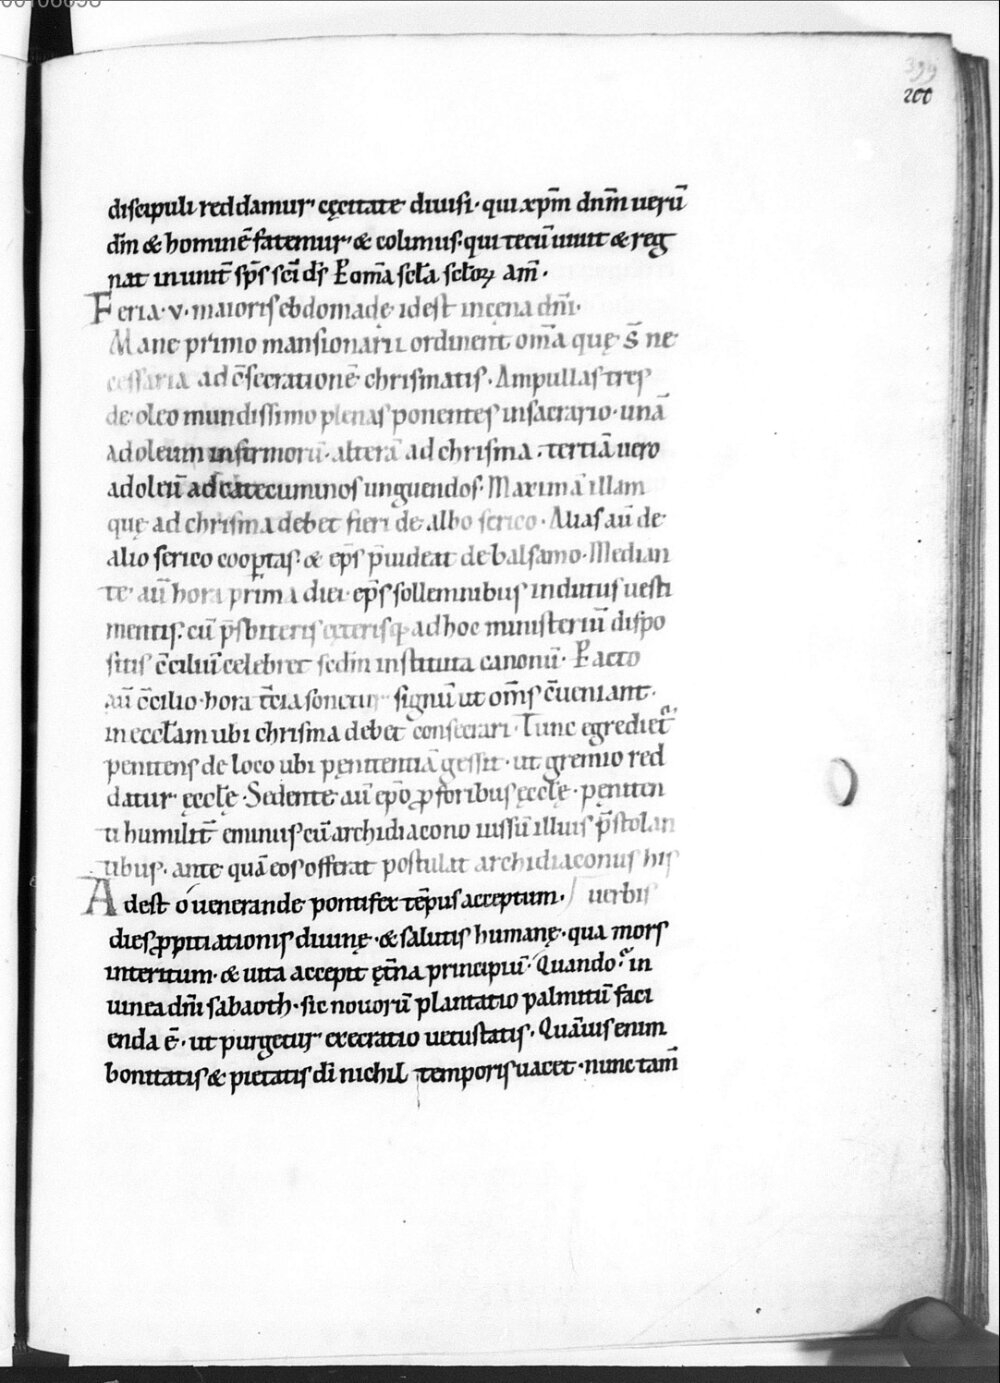 399
200
discipuli reddamur cęcitate diuisi· qui xp̄m dn̄m uerū
dm̄ & hominē fatemur· & colimus· qui tecū uiuit & reg
nat in unit̄ sp̄s sc̄i ds̄ P om̄a scl̄a scl̄oꝝ am̄·
Feria·v· maioris ebdomadę· idest in cęna dn̄i·
Mane primo mansionarii ordinent om̄a quę s̄ ne
cessaria ad c̄secrationē chrismatis· Ampullas tres
de oleo mundissimo plenas ponentes in sacrario· unā
ad oleum infirmorū· alterā ad chrisma· tertiā uero
ad oleū ad catecuminos unguendos· Maximā illam
quę ad chrisma debet fieri de albo serico· Alias aū de
alio serico coop̄tas· & ep̄s p̄uideat de balsamo· Median
te· aū hora prima diei· ep̄s sollemnibus indutus uesti
mentis· cū p̄sbiteris cęterisq; ad hoc ministeriū dispo
sitis c̄ciliū celebret scdm̄ instituta canonū· Pacto
aū c̄cilio· hora t̄cia sonetur signū ut om̄s c̄ueniant·
in eccl̄am ubi chrisma debet consecrari· Tunc egrediet᷑
penitens de loco ubi pęnitentiā gessit· ut gremio red
datur ęccl̄ę· Sedente aū ep̄o ꝓ foribus ęccl̄ę· pęniten
ti humilit̄ eminus cū archidiacono iussū illius p̄stolan
tibus· ante quā eos offerat postulat archidiaconus his
Adest o uenerande pontifex tēpus acceptum· / uerbis
dies ꝓpitiationis diuinę· & salutis humanę· qua mors
interitum· & uita accepit ęt̄na principiū· Quando in
uinea dn̄i sabaoth· sic nouorū plantatio palmitū faci
enda ē· ut purgetur execratio uetustatis· Quāuis enim
bonitatis & pietatis di nichil temporis uacet· nunc tam̄